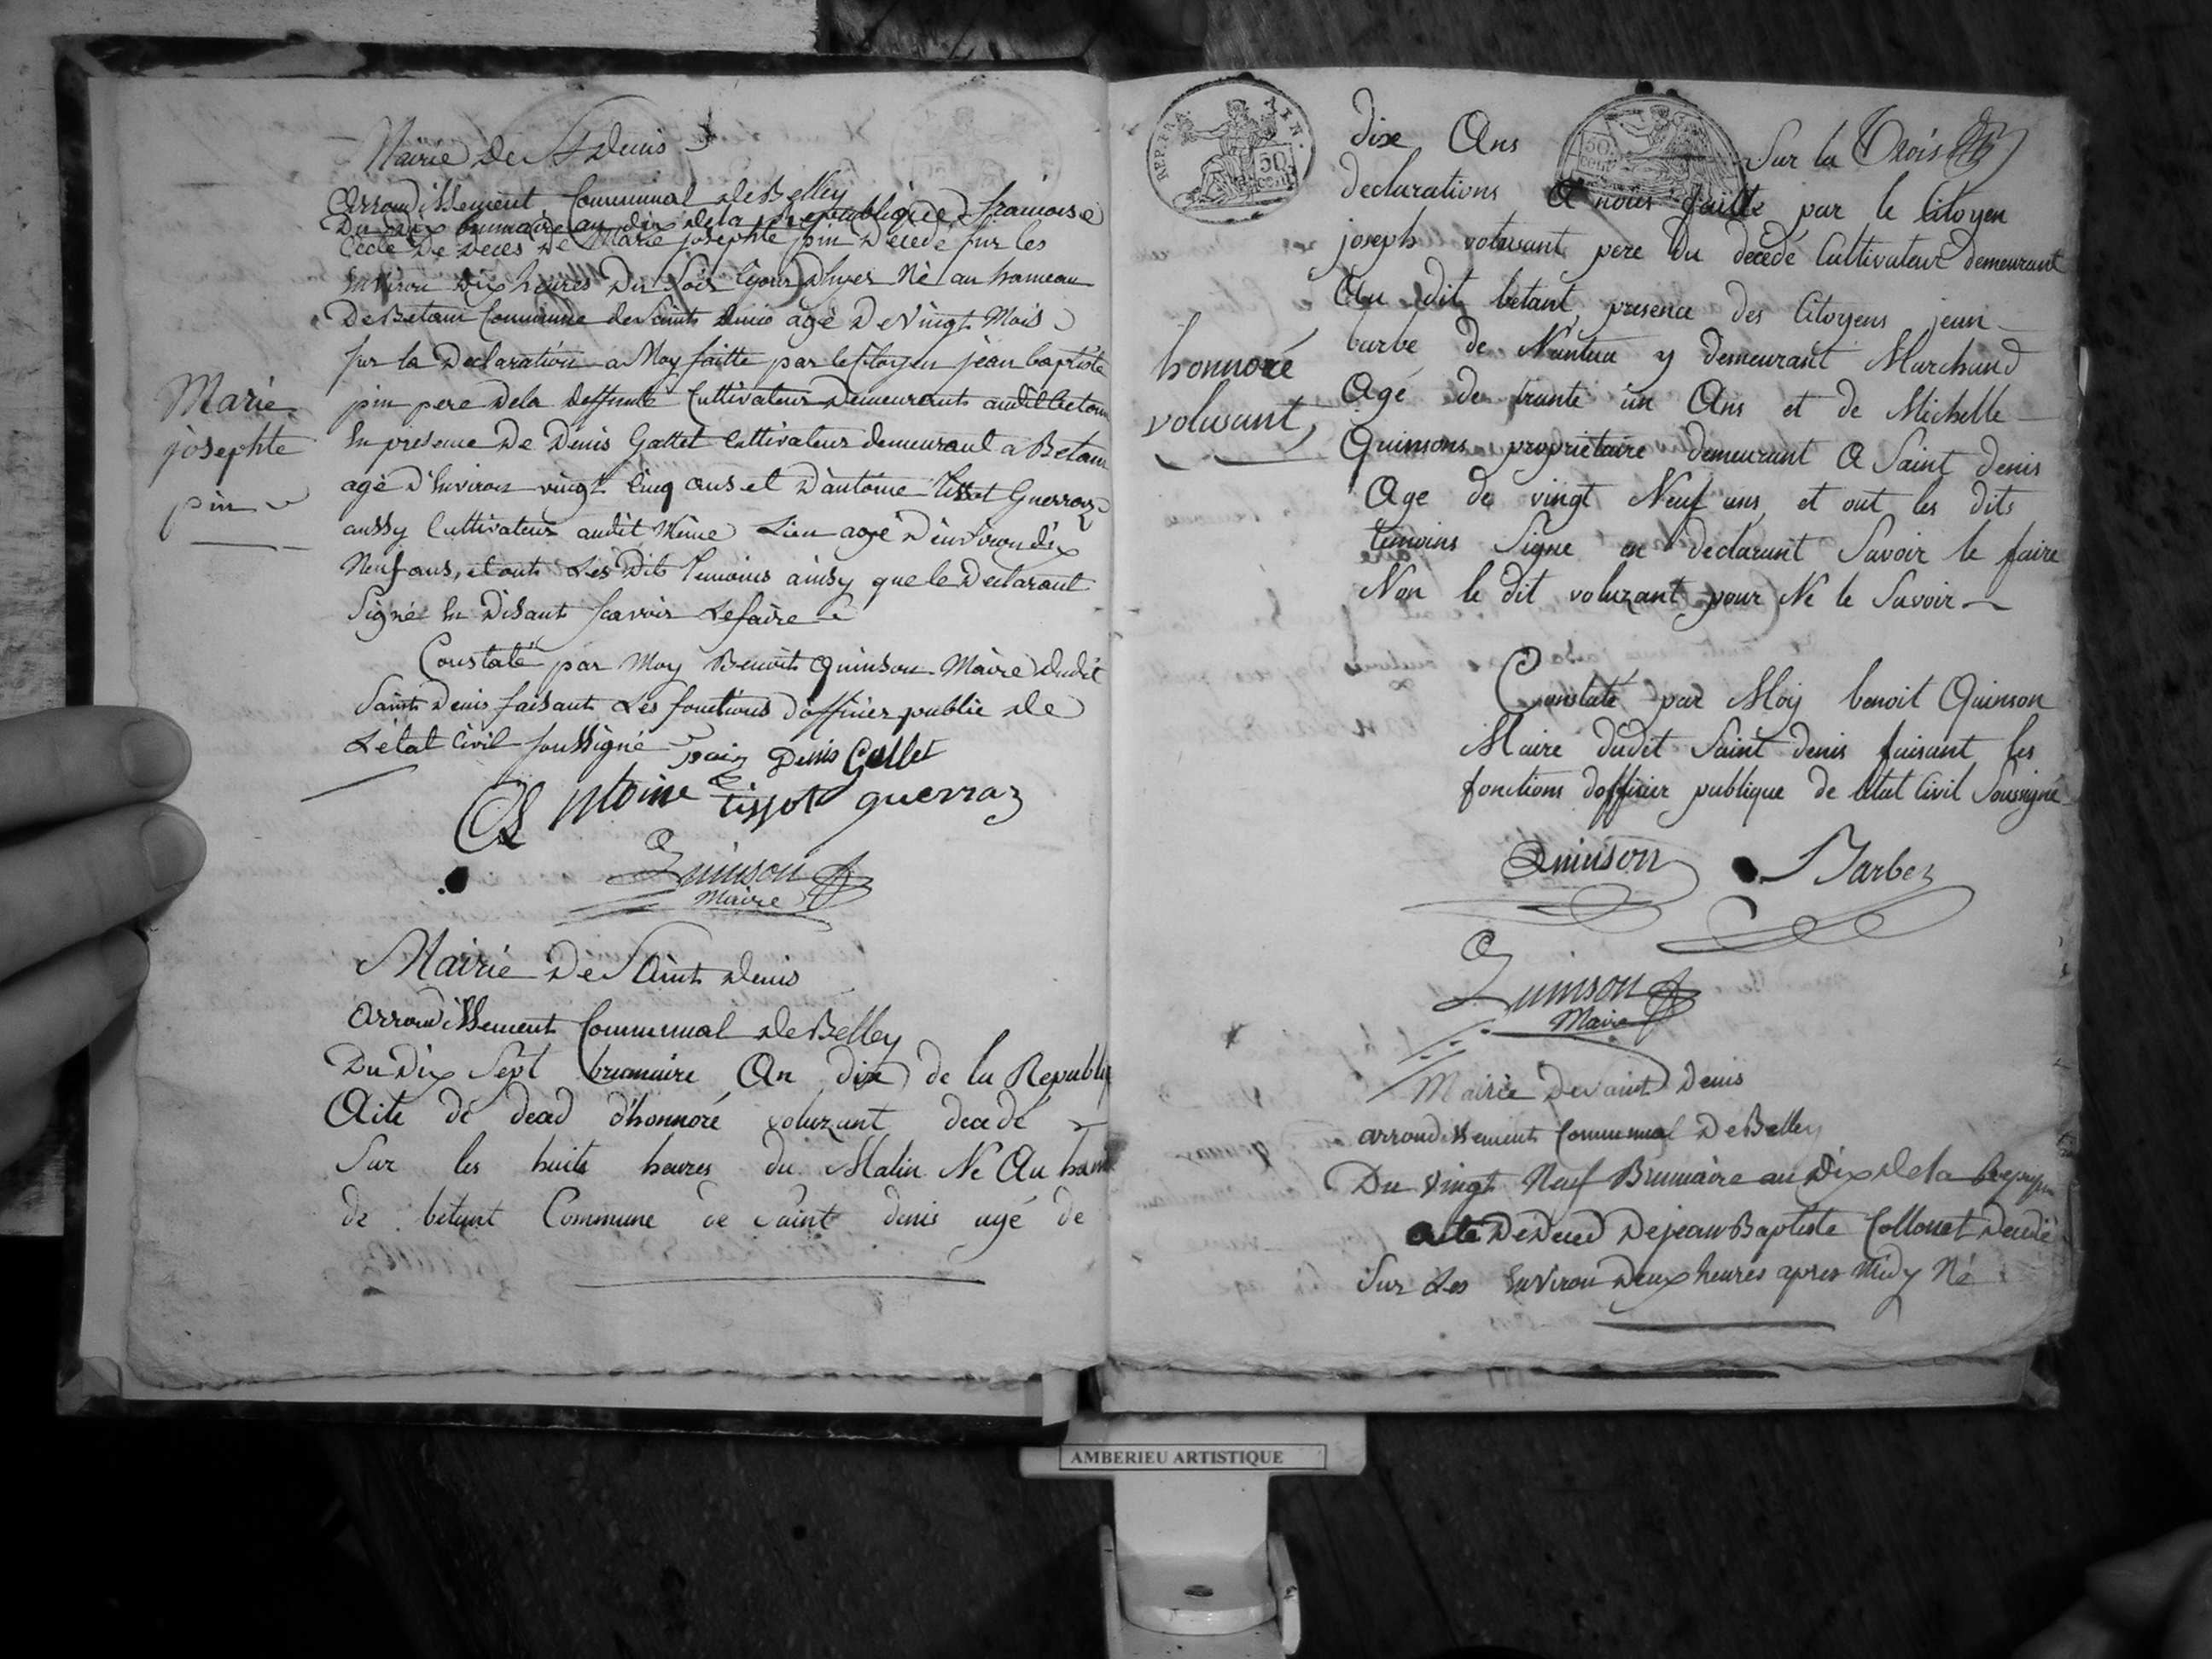 Mairie De St Denis
Arrondissement Communal de Belley
Du dix brumaire an dix de la Republique francoise
acte De Deces De Marie josephte pin Décedé sur les
Environ Dix heures Du Soir Né au hameau
De Betan Commune de Saint denis agé De Vingt Mois
sur la Declaration a Moy faitte par le Citoyen jean baptiste
pin pere Dela deffunte Cultivateur Demeurant audit betan
En presence De Denis Gallet Cultivateur demeurant a Betan
agé d'Environ vingt Cinq ans et D'antoine Tissot Guerraz
aussy Cultivateur audit Même Lieu agé D'environ dix
Neuf ans, et ont Les Dits Temoins ainsy que le Declarant
Signé En Disant scavoir Le faire
Marie
josephte
pin
Constaté par Moy Benoit Quinson Maire dudit
Saint Denis faisant Les fonctions d'officier public de
L'état Civil soussigné
pain Denis Gallet
Antoine tissot guerraz
Quinson
Maire
Mairie De Saint denis
arrondissement Communal de Belley
Du Dix Sept brumaire An dix de la Republiq
Acte de decad d'honnoré voluzant decedé
Sur les huits heures du Matin Né Au ham
de betant Commune de Saint denis agé de
REP. FRA. 50 cent.
50 cent.
dix Ans Sur la Trois
declarations A nous faitte par le Citoyen
joseph volusant pere du decedé Cultivateur demeurant
Au dit betant, presence des Citoyens jean
barbe de Nantua y demeurant Marchand
Agé de trante un Ans et de Michelle
Quinsons propriétaire demeurant A Saint denis
Age de vingt Neuf ans, et ont les dits
temoins Signe en declarant Savoir le faire
Non le dit voluzant pour Ne le Savoir
honnoré
volusant,
Constaté par Moy benoit Quinson
Maire dudit Saint denis faisant les
fonctions dofficier publique de letat Civil Soussigné
Quinson Barbe
Quinson
Maire
Mairie De Saint Denis
arrondissement Communal De Belley
Du Vingt Neuf Brumaire an Dix de la
acte De Deced De jean Baptiste Collonet Decedé
Sur Les Environ Deux heures apres Midy Né
AMBERIEU ARTISTIQUE